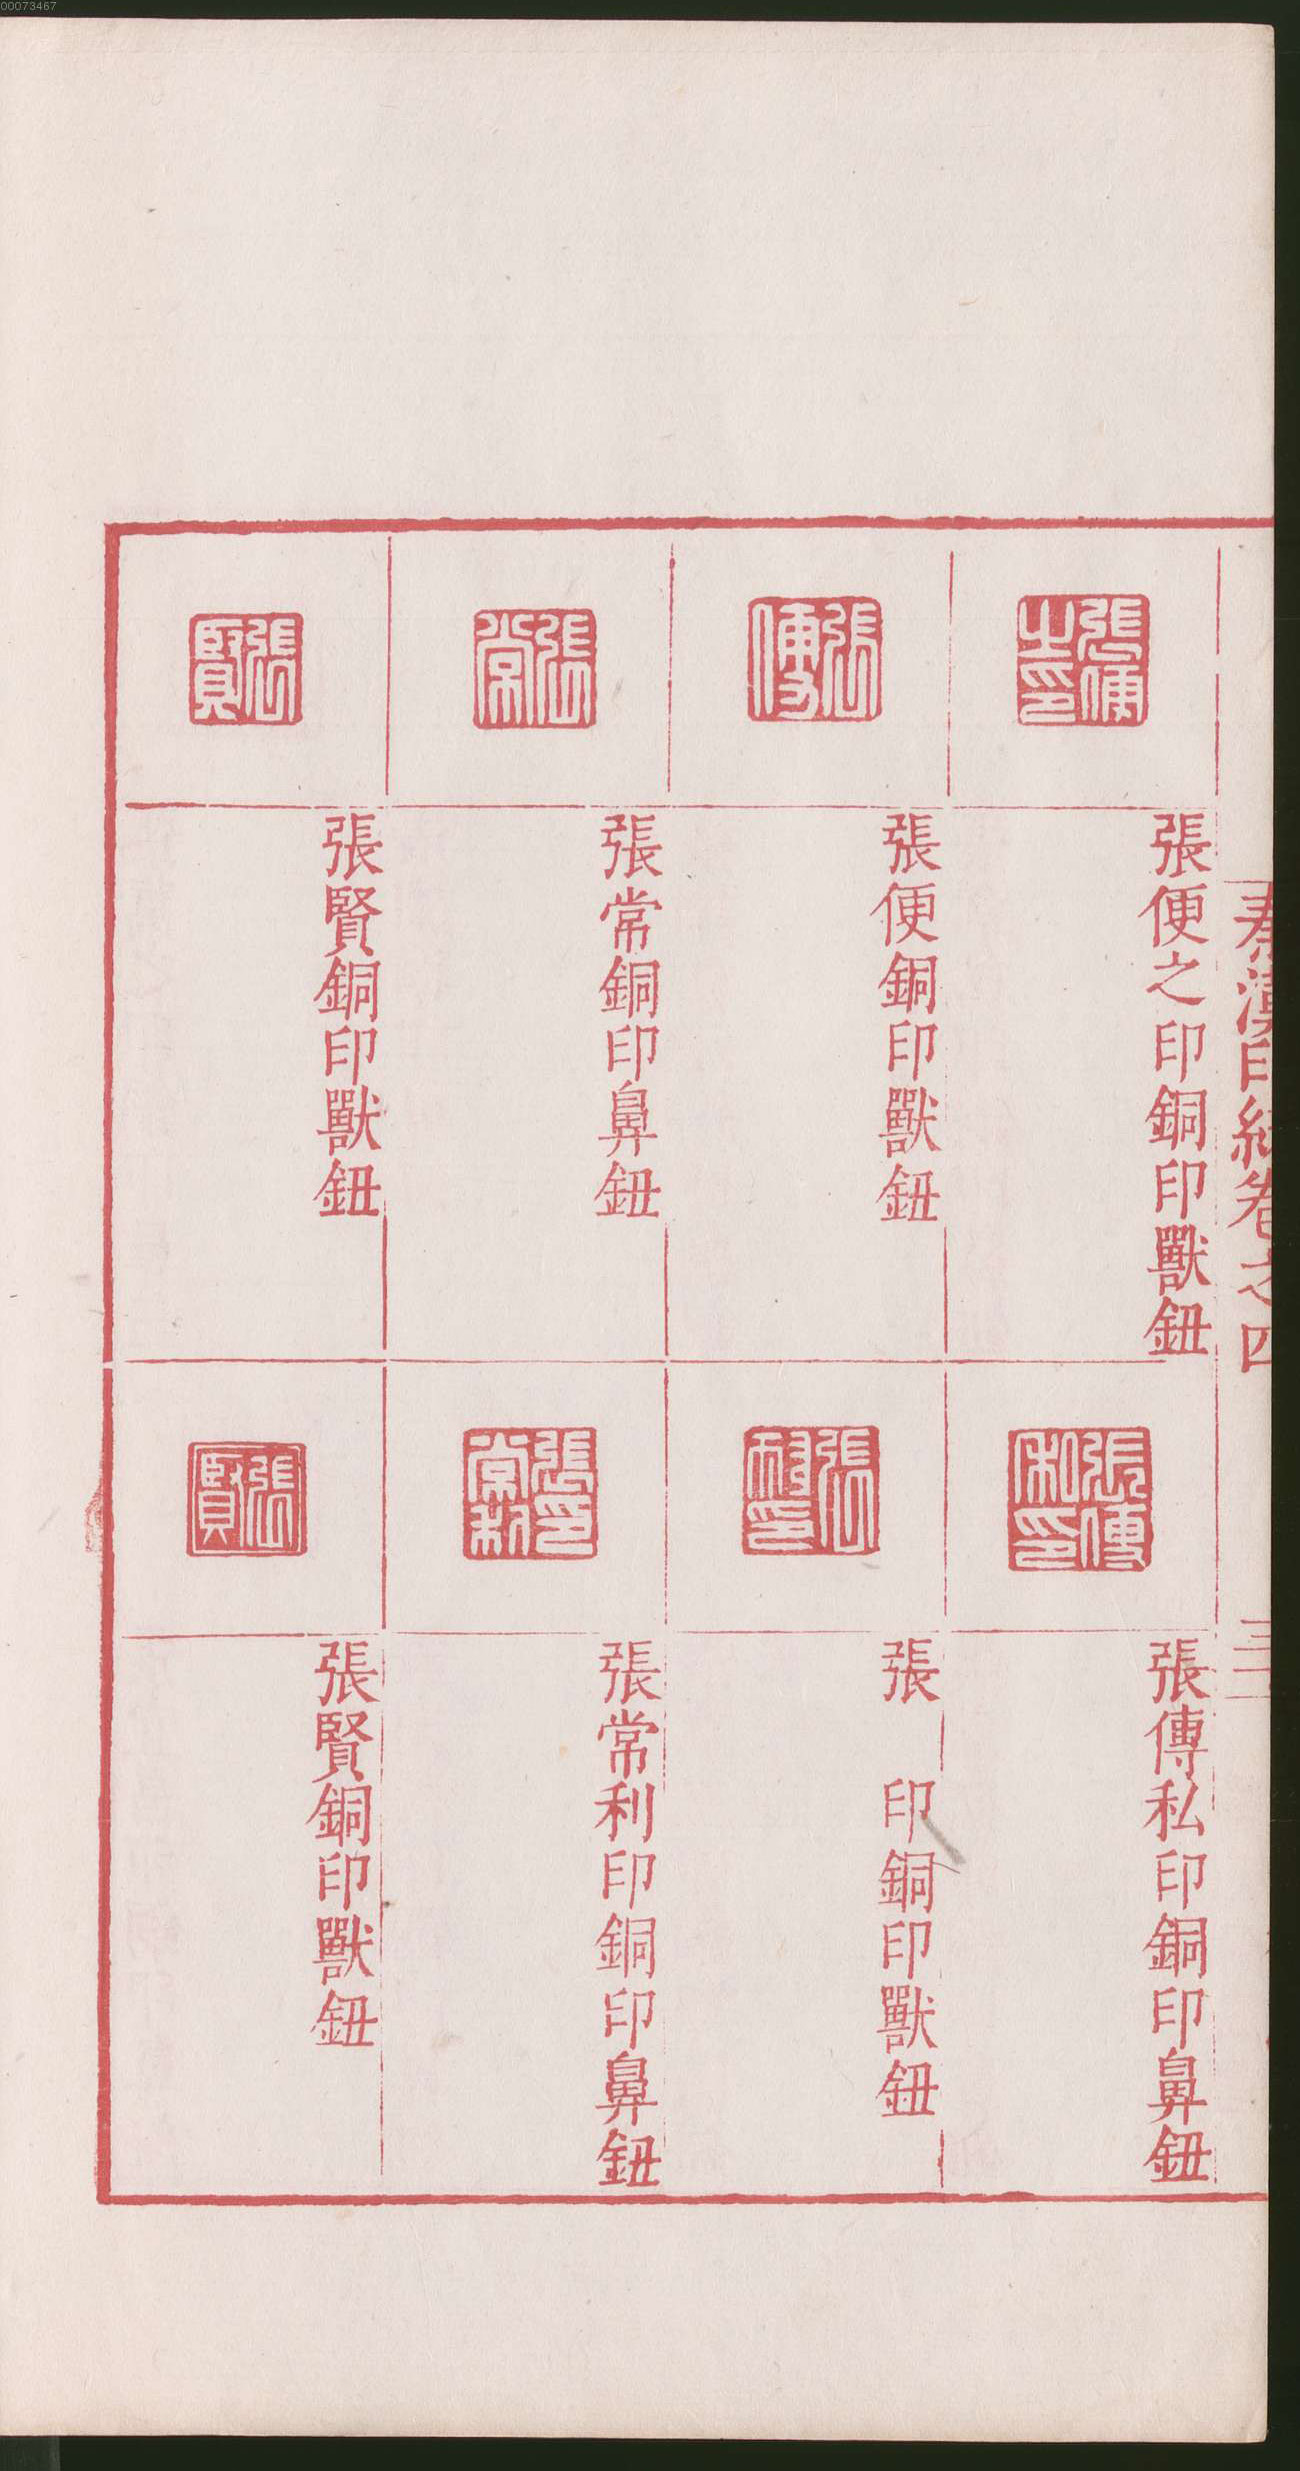 00073467
秦漢印統卷之四
張便之印銅印獸鈕
張便銅印獸鈕
張常銅印鼻鈕
張賢銅印獸鈕
張傳私印銅印鼻鈕
張 印銅印獸鈕
張常利印銅印鼻鈕
張賢銅印獸鈕